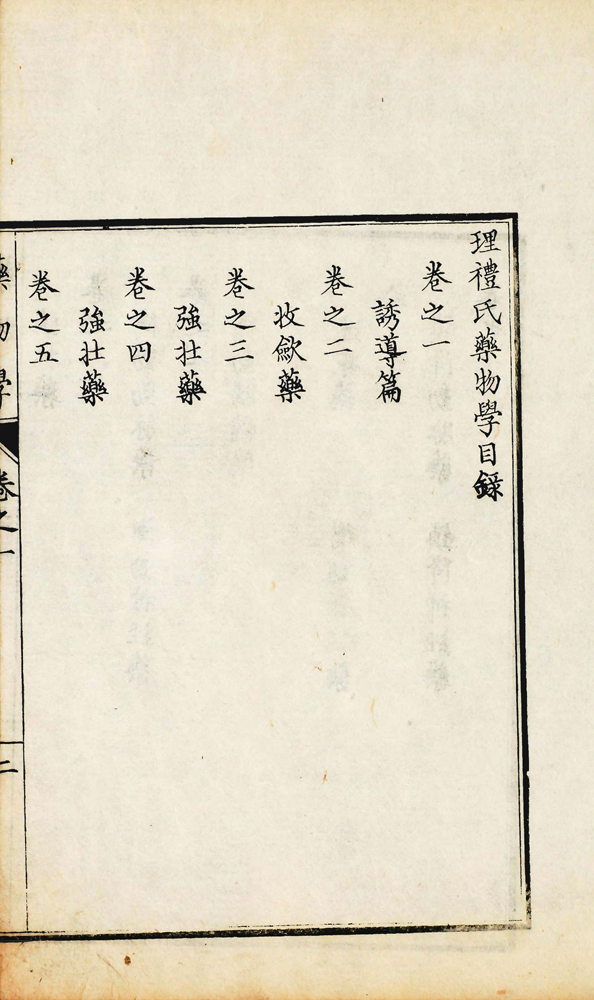 理禮氏藥物學目錄
卷之一
誘導篇
卷之二
收歛藥
卷之三
強壯藥
卷之四
強壯藥
卷之五
藥物學
卷之一
二